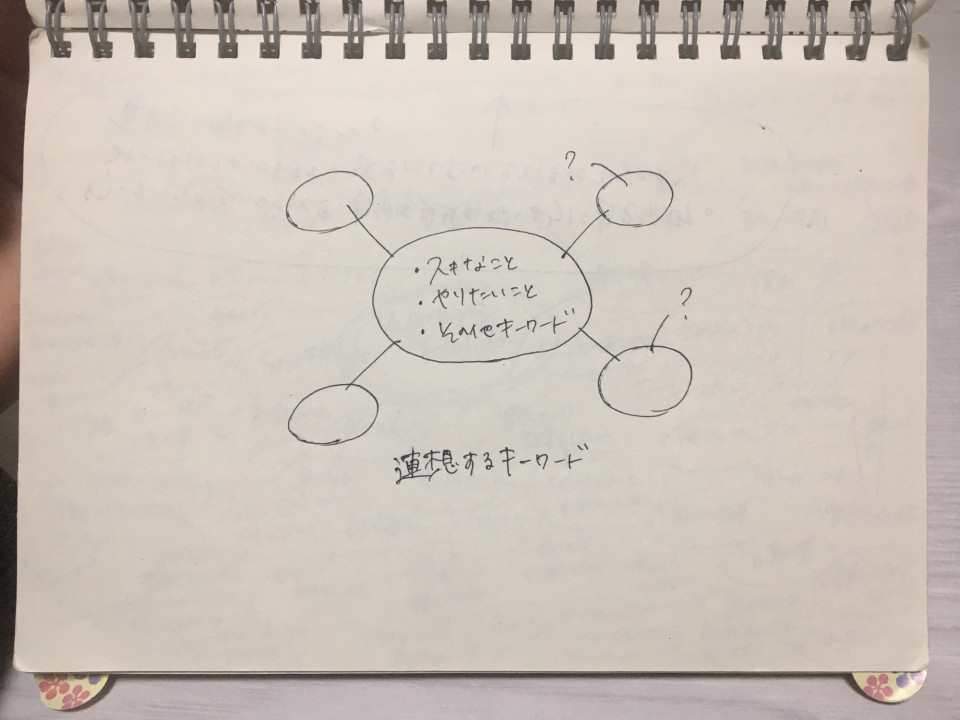 ?
・スキなこと
・やりたいこと
・その他キーワード
?
連想するキーワード